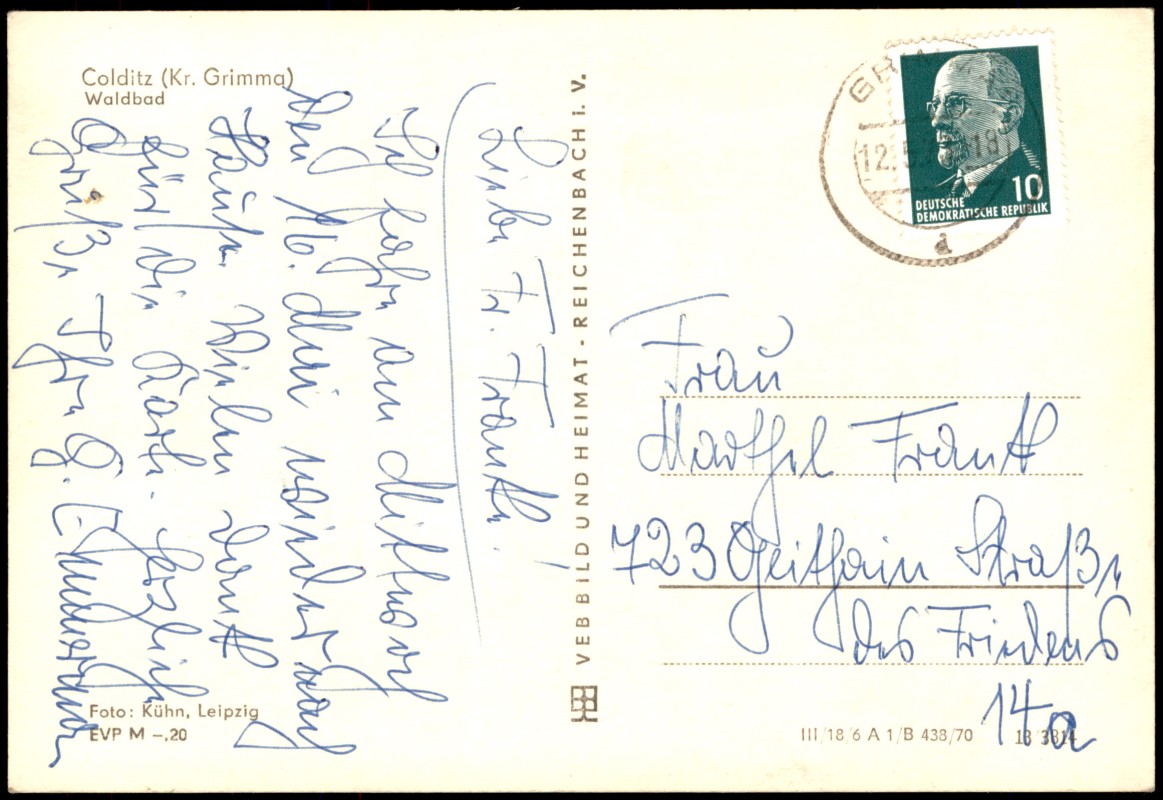 Colditz (Kr. Grimma)
Waldbad
Liebe Fr. Frankh!
Ich fahre am Mittwoch
den 16. Mai wieder nach
Hause. Vielen Dank
für die Karte. Herzliche
Grüße Ihre G.
Foto: Kühn, Leipzig
EVP M –,20
VEB BILD UND HEIMAT - REICHENBACH I. V.
12.5. 18
10
DEUTSCHE
DEMOKRATISCHE REPUBLIK
Frau
Marthel
723 Geithain Straße
des Friedens
14a
III/18/6 A 1/B 438/70 13 3314